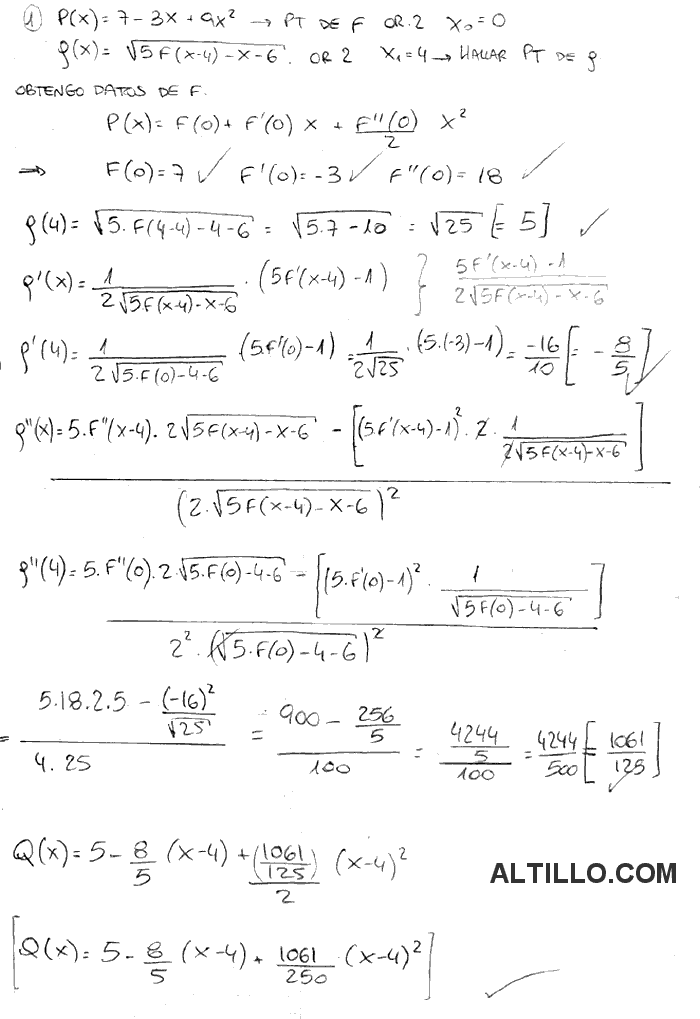 ① P(x) = 7 - 3x + 9x² → PT DE F OR. 2 x₀ = 0
g(x) = √(5F(x-4) - x - 6). OR 2 x₁ = 4 → HALLAR PT DE g
OBTENGO DATOS DE F.
P(x) = F(0) + F'(0) x + F''(0)/2 x²
⇒ F(0) = 7 ✓ F'(0) = -3 ✓ F''(0) = 18 ✓
g(4) = √(5.F(4-4) - 4 - 6) = √(5.7 - 10) = √25 [= 5] ✓
g'(x) = 1/(2√(5F(x-4) - x - 6)) . (5F'(x-4) - 1) } (5F'(x-4) - 1)/(2√(5F(x-4) - x - 6))
g'(4) = 1/(2√(5.F(0) - 4 - 6)) . (5.F'(0) - 1) = 1/(2√25) . (5.(-3) - 1) = -16/10 [= -8/5] ✓
g''(x) = (5.F''(x-4) . 2√(5F(x-4) - x - 6) - [(5.F'(x-4) - 1)² . 2 . 1/(2√(5F(x-4) - x - 6))])/(2.√(5F(x-4) - x - 6))²
g''(4) = (5.F''(0) . 2.√(5.F(0) - 4 - 6) - [(5.F'(0) - 1)² . 1/√(5F(0) - 4 - 6)])/(2² . (√(5.F(0) - 4 - 6))²)
= (5.18.2.5 - (-16)²/√25)/(4.25) = (900 - 256/5)/100 = (4244/5)/100 = 4244/500 [= 1061/125] ✓
Q(x) = 5 - 8/5 (x-4) + (1061/125)/2 (x-4)²
ALTILLO.COM
[Q(x) = 5 - 8/5 (x-4) + 1061/250 . (x-4)²] ✓